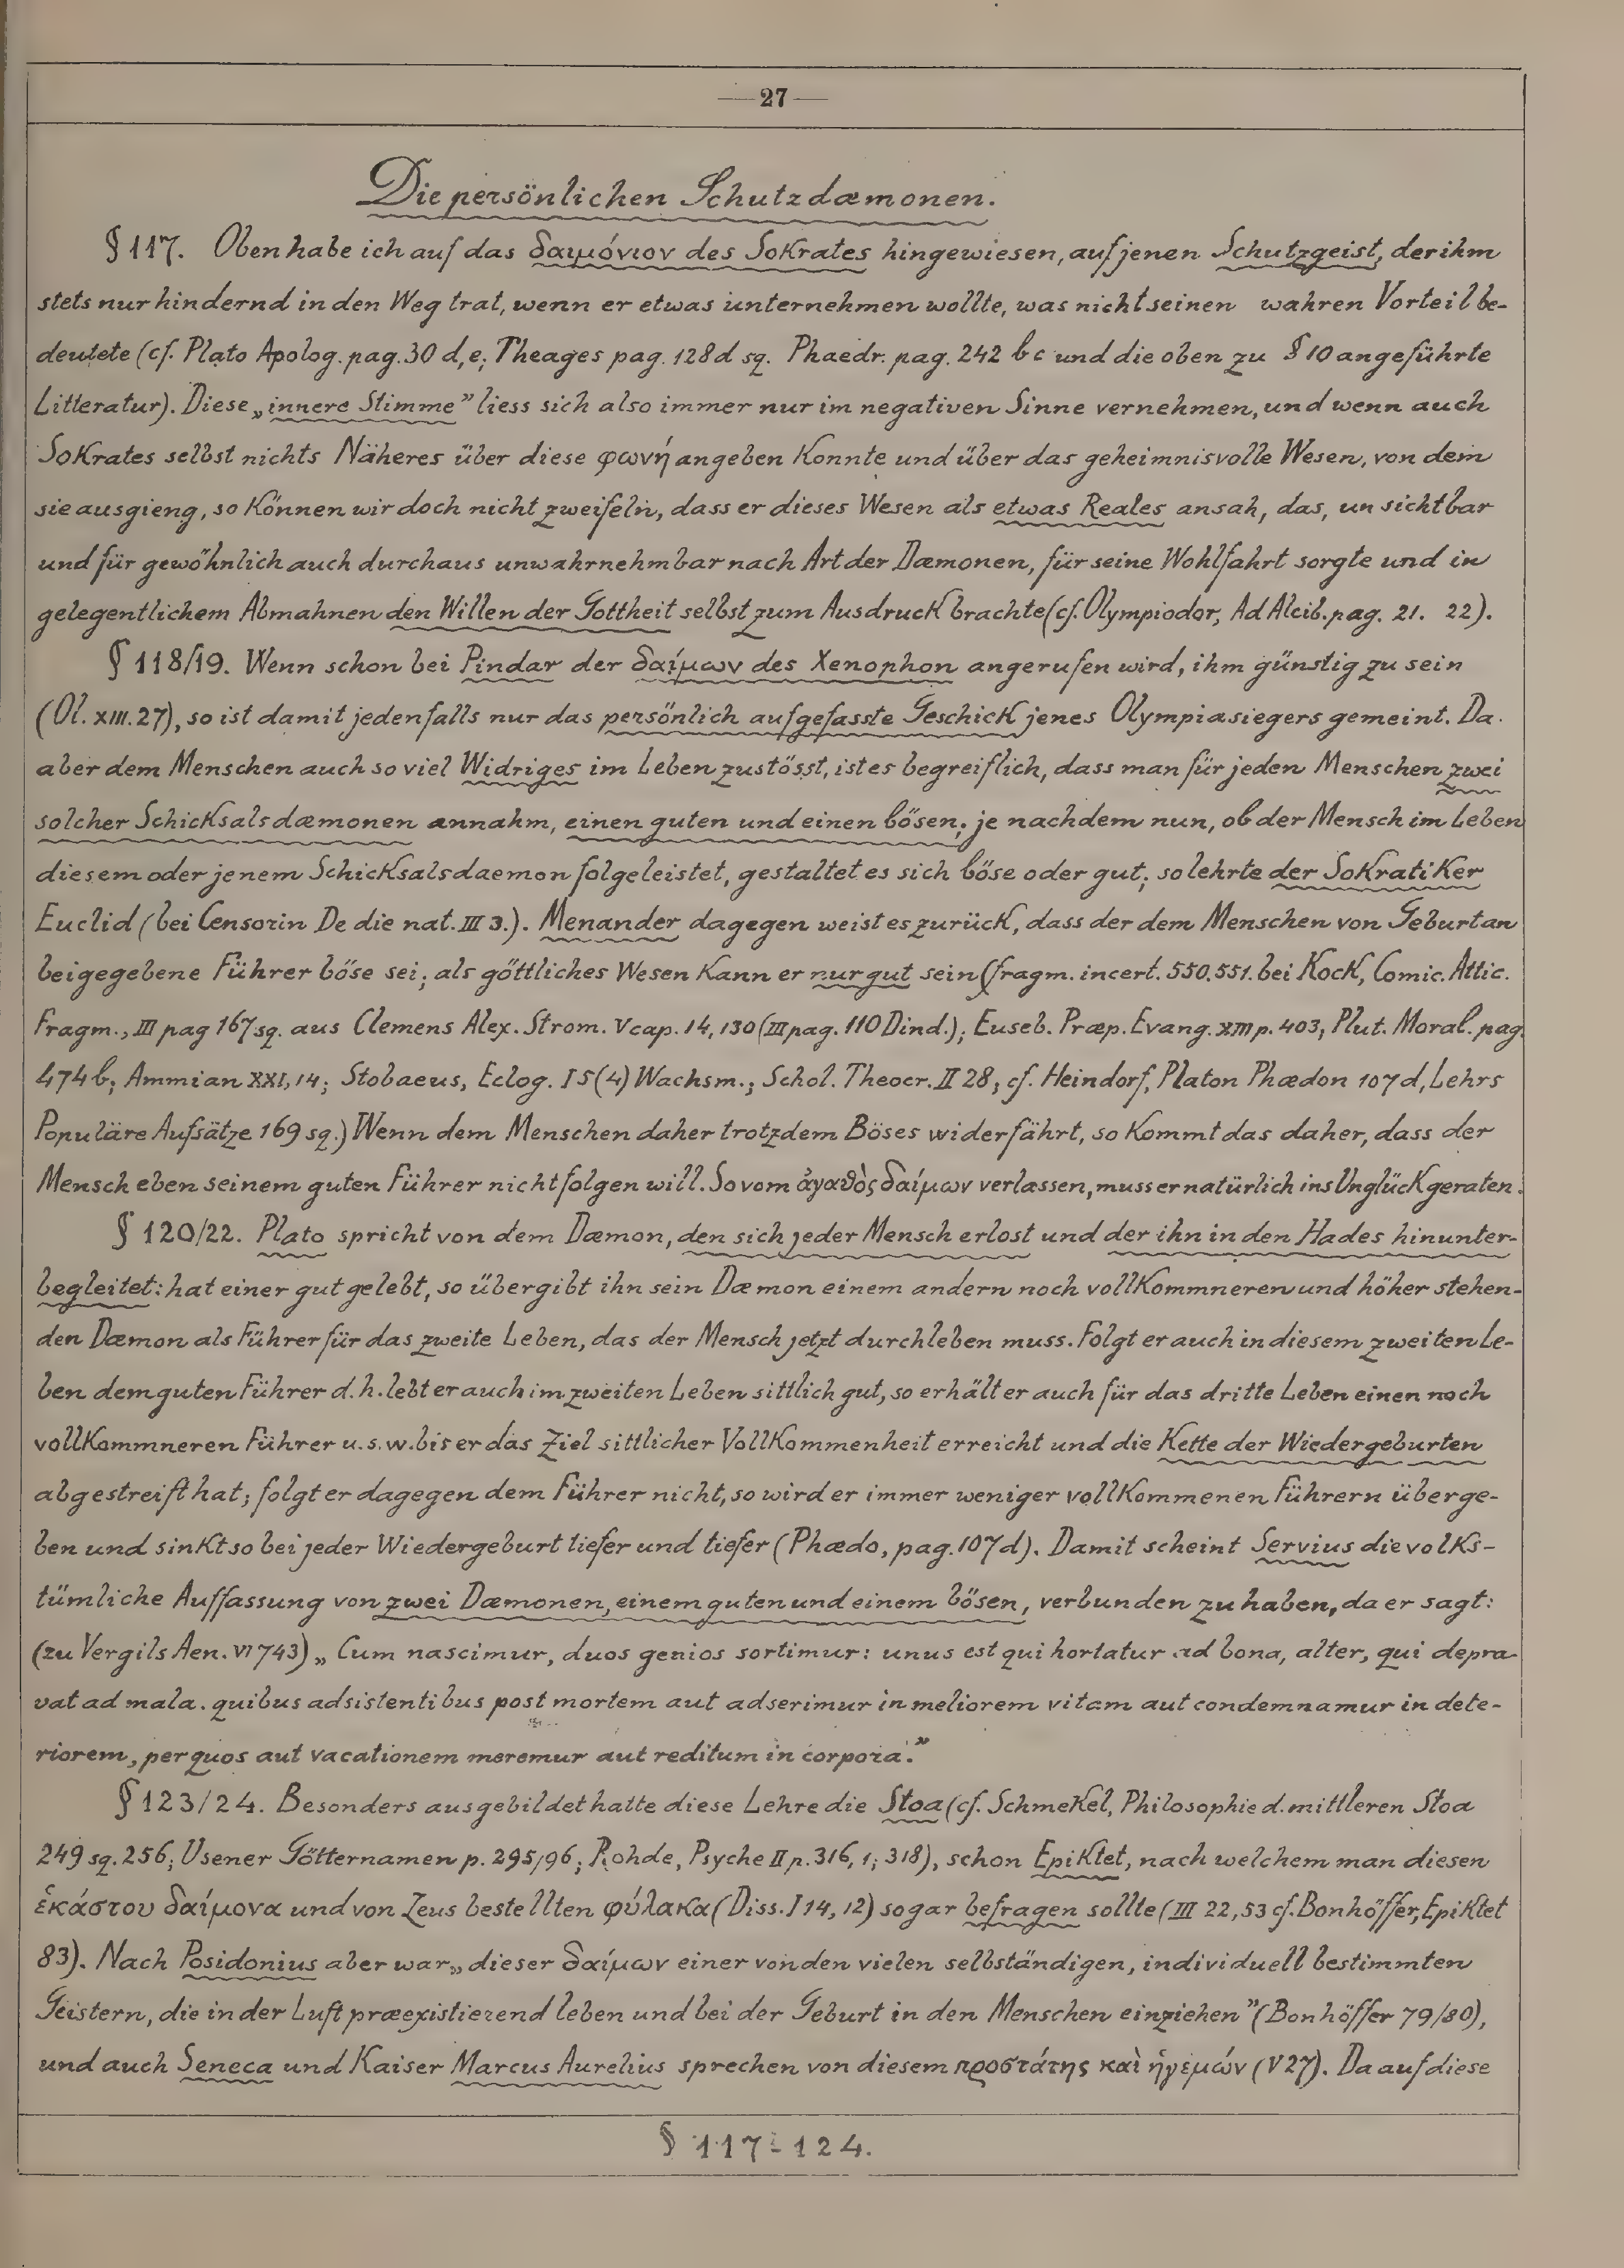 — 27 —
Die persönlichen Schutzdæmonen.
§ 117. Oben habe ich auf das δαιμόνιον des Sokrates hingewiesen, auf jenen Schutzgeist, der ihm
stets nur hindernd in den Weg trat, wenn er etwas unternehmen wollte, was nicht seinen wahren Vorteil be-
deutete (cf. Plato Apolog. pag. 30 d, e; Theages pag. 128 d sq. Phaedr. pag. 242 b c und die oben zu § 10 angeführte
Litteratur). Diese „innere Stimme” liess sich also immer nur im negativen Sinne vernehmen, und wenn auch
Sokrates selbst nichts Näheres über diese φωνή angeben konnte und über das geheimnisvolle Wesen, von dem
sie ausgieng, so können wir doch nicht zweifeln, dass er dieses Wesen als etwas Reales ansah, das, unsichtbar
und für gewöhnlich auch durchaus unwahrnehmbar nach Art der Dæmonen, für seine Wohlfahrt sorgte und in
gelegentlichem Abmahnen den Willen der Gottheit selbst zum Ausdruck brachte (cf. Olympiodor, Ad Alcib. pag. 21. 22).
§ 118/19. Wenn schon bei Pindar der δαίμων des Xenophon angerufen wird, ihm günstig zu sein
(Ol. XIII. 27), so ist damit jedenfalls nur das persönlich aufgefasste Geschick jenes Olympiasiegers gemeint. Da
aber dem Menschen auch so viel Widriges im Leben zustösst, ist es begreiflich, dass man für jeden Menschen zwei
solcher Schicksalsdæmonen annahm, einen guten und einen bösen; je nachdem nun, ob der Mensch im Leben
diesem oder jenem Schicksalsdaemon folgeleistet, gestaltet es sich böse oder gut; so lehrte der Sokratiker
Euclid (bei Censorin De die nat. III 3.). Menander dagegen weist es zurück, dass der dem Menschen von Geburt an
beigegebene Führer böse sei; als göttliches Wesen kann er nur gut sein (fragm. incert. 550. 551. bei Kock, Comic. Attic.
Fragm., III pag 167 sq. aus Clemens Alex. Strom. V cap. 14, 130 (III pag. 110 Dind.); Euseb. Præp. Evang. XIII p. 403, Plut. Moral. pag.
474 b; Ammian XXI, 14; Stobaeus, Eclog. I 5 (4) Wachsm.; Schol. Theocr. II 28; cf. Heindorf, Platon Phædon 107 d, Lehrs
Populäre Aufsätze 169 sq.) Wenn dem Menschen daher trotzdem Böses widerfährt, so kommt das daher, dass der
Mensch eben seinem guten Führer nicht folgen will. So vom ἀγαθὸς δαίμων verlassen, muss er natürlich ins Unglück geraten.
§ 120/22. Plato spricht von dem Dæmon, den sich jeder Mensch erlost und der ihn in den Hades hinunter-
begleitet: hat einer gut gelebt, so übergibt ihn sein Dæmon einem andern noch vollkommneren und höher stehen-
den Dæmon als Führer für das zweite Leben, das der Mensch jetzt durchleben muss. Folgt er auch in diesem zweiten Le-
ben dem guten Führer d. h. lebt er auch im zweiten Leben sittlich gut, so erhält er auch für das dritte Leben einen noch
vollkommneren Führer u. s. w. bis er das Ziel sittlicher Vollkommenheit erreicht und die Kette der Wiedergeburten
abgestreift hat; folgt er dagegen dem Führer nicht, so wird er immer weniger vollkommenen Führern überge-
ben und sinkt so bei jeder Wiedergeburt tiefer und tiefer (Phædo, pag. 107 d). Damit scheint Servius die volks-
tümliche Auffassung von zwei Dæmonen, einem guten und einem bösen, verbunden zu haben, da er sagt:
(zu Vergils Aen. VI 743) „Cum nascimur, duos genios sortimur: unus est qui hortatur ad bona, alter, qui depra-
vat ad mala. quibus adsistentibus post mortem aut adserimur in meliorem vitam aut condemnamur in dete-
riorem, per quos aut vacationem meremur aut reditum in corpora.”
§ 123/24. Besonders ausgebildet hatte diese Lehre die Stoa (cf. Schmekel, Philosophie d. mittleren Stoa
249 sq. 256; Usener Götternamen p. 295/96; Rohde, Psyche II p. 316, 1; 318), schon Epiktet, nach welchem man diesen
ἑκάστου δαίμονα und von Zeus bestellten φύλακα (Diss. I 14, 12) sogar befragen sollte (III 22, 53 cf. Bonhöffer, Epiktet
83). Nach Posidonius aber war „dieser δαίμων einer von den vielen selbständigen, individuell bestimmten
Geistern, die in der Luft præexistierend leben und bei der Geburt in den Menschen einziehen” (Bonhöffer 79/80),
und auch Seneca und Kaiser Marcus Aurelius sprechen von diesem προστάτης καὶ ἡγεμών (V 27). Da auf diese
§ 117-124.